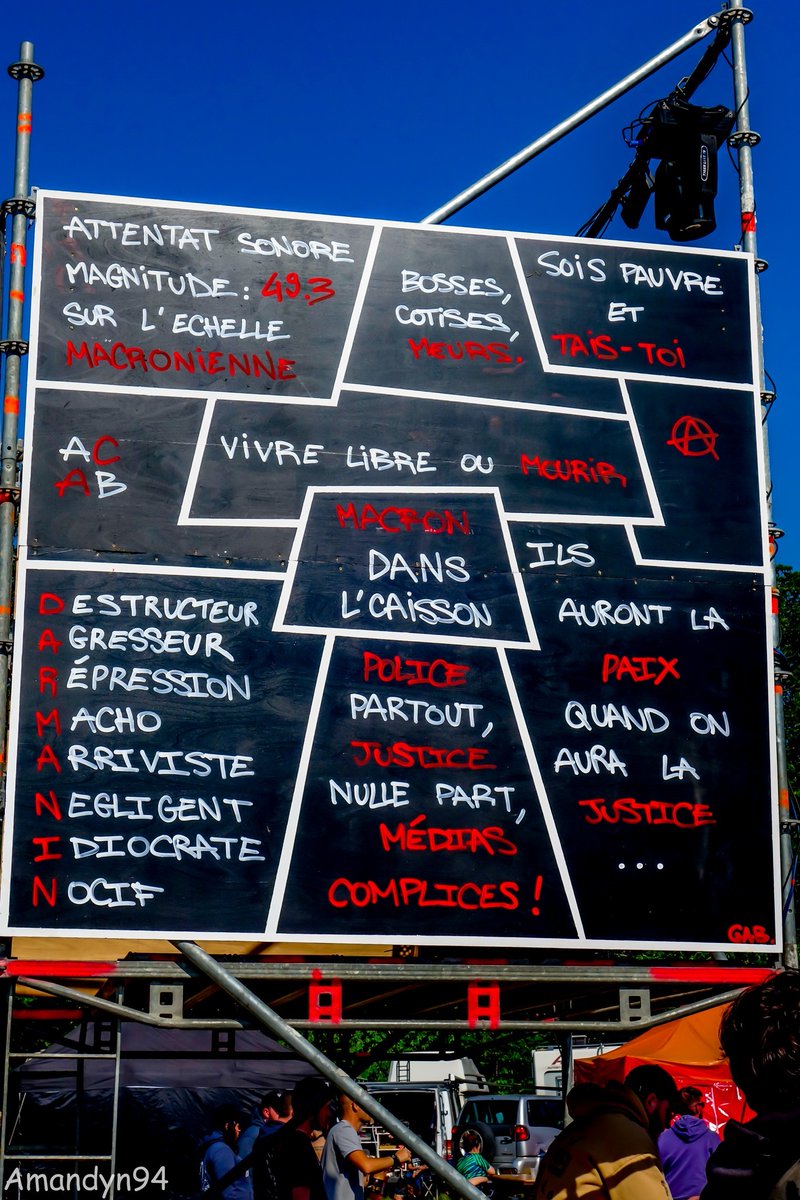 ATTENTAT SONORE
MAGNITUDE: 49.3
SUR L'ECHELLE
MACRONIENNE
BOSSES,
COTISES,
MEURS.
SOIS PAUVRE
ET
TAIS-TOI
AC
AB
VIVRE LIBRE OU MOURIR
A
MACRON
DANS
L'CAISSON
DESTRUCTEUR
AGRESSEUR
RÉPRESSION
MACHO
ARRIVISTE
NEGLIGENT
IDIOCRATE
NOCIF
POLICE
PARTOUT,
JUSTICE
NULLE PART,
MÉDIAS
COMPLICES !
ILS
AURONT LA
PAIX
QUAND ON
AURA LA
JUSTICE
...
GAB.
Amandyn94